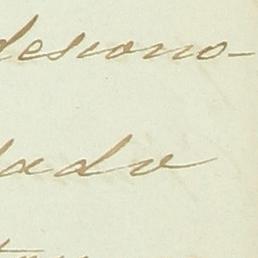 descono-
dado